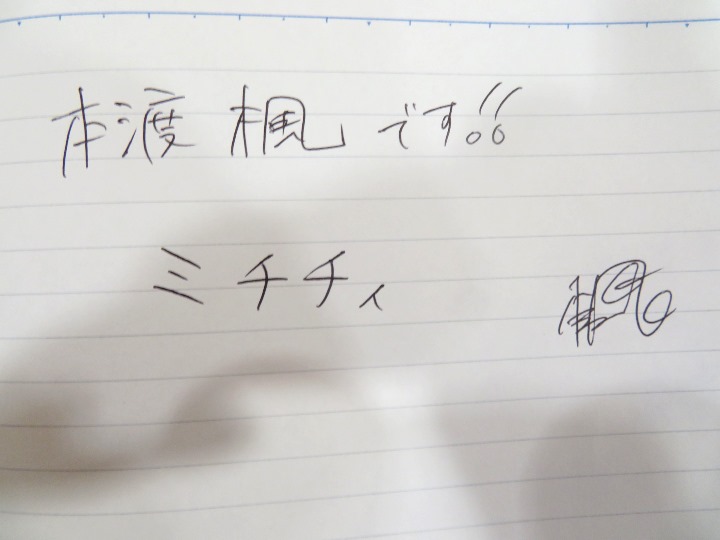 本渡 楓 です!!
ミチチィ